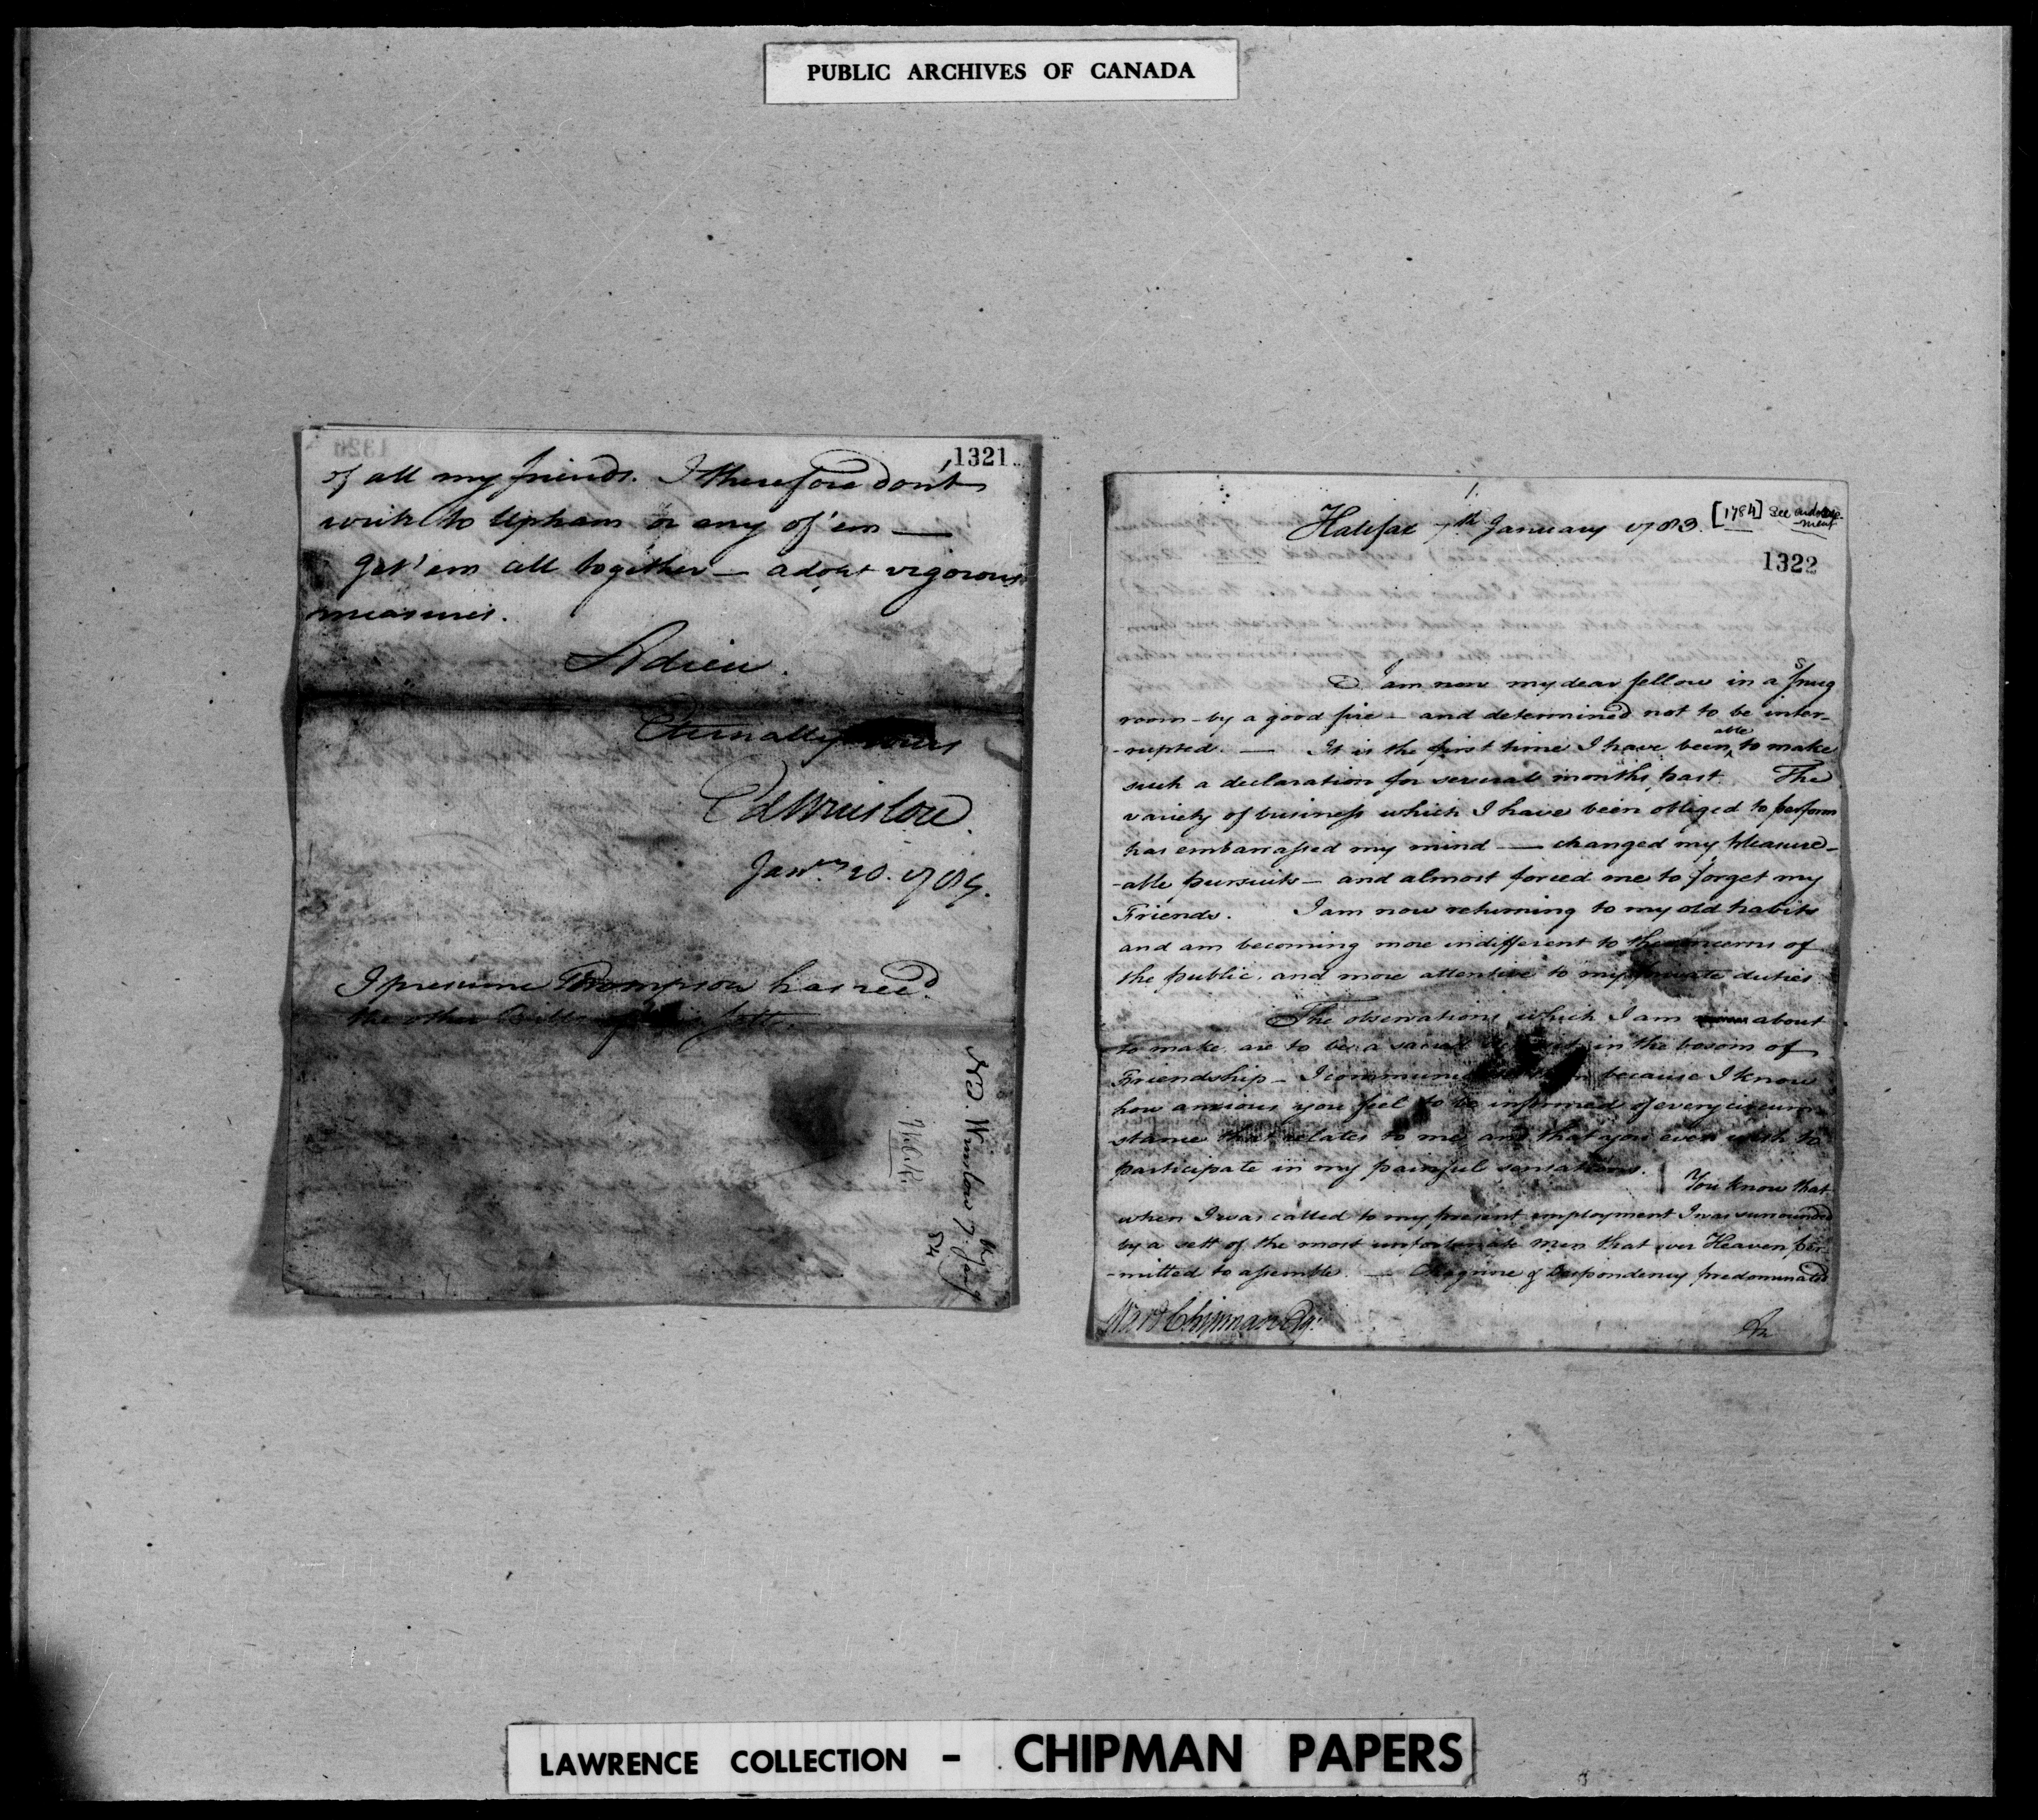 PUBLIC ARCHIVES OF CANADA
1321
of all my friends. I therefore dont
write to Upham or any of 'em —
Get 'em all together — adopt vigorous
measures.
Adieu.
Eternally yours
Ed Winslow.
Janry 20. 1784.
I presume Thompson has recd.
the other Bills
ND. Winslow 7. Jany
84
1.
Halifax 7th January 1783. [1784] See endorse-
-ment
1322
I am now my dear fellow in a snug
room - by a good fire - and determined not to be inter-
-rupted. — It is the first time I have been able to make
such a declaration for several months past. The
variety of business which I have been obliged to perform
has embarrassed my mind — changed my pleasure-
-able pursuits — and almost forced me to forget my
Friends. I am now returning to my old habits
and am becoming more indifferent to the concerns of
the public, and more attentive to my private duties.
The observations which I am about
to make are to be a sacred in the bosom of
Friendship - I communicate them because I know
how anxious you feel to be informed of every circum-
stance that relates to me, and that you even wish to
participate in my painful sensations. You know that
when I was called to my present employment I was surrounded
by a sett of the most unfortunate men that ever Heaven per-
-mitted to assemble. — Chagrine & Despondency predominated
Ward Chipman Esqr.
In
LAWRENCE COLLECTION - CHIPMAN PAPERS